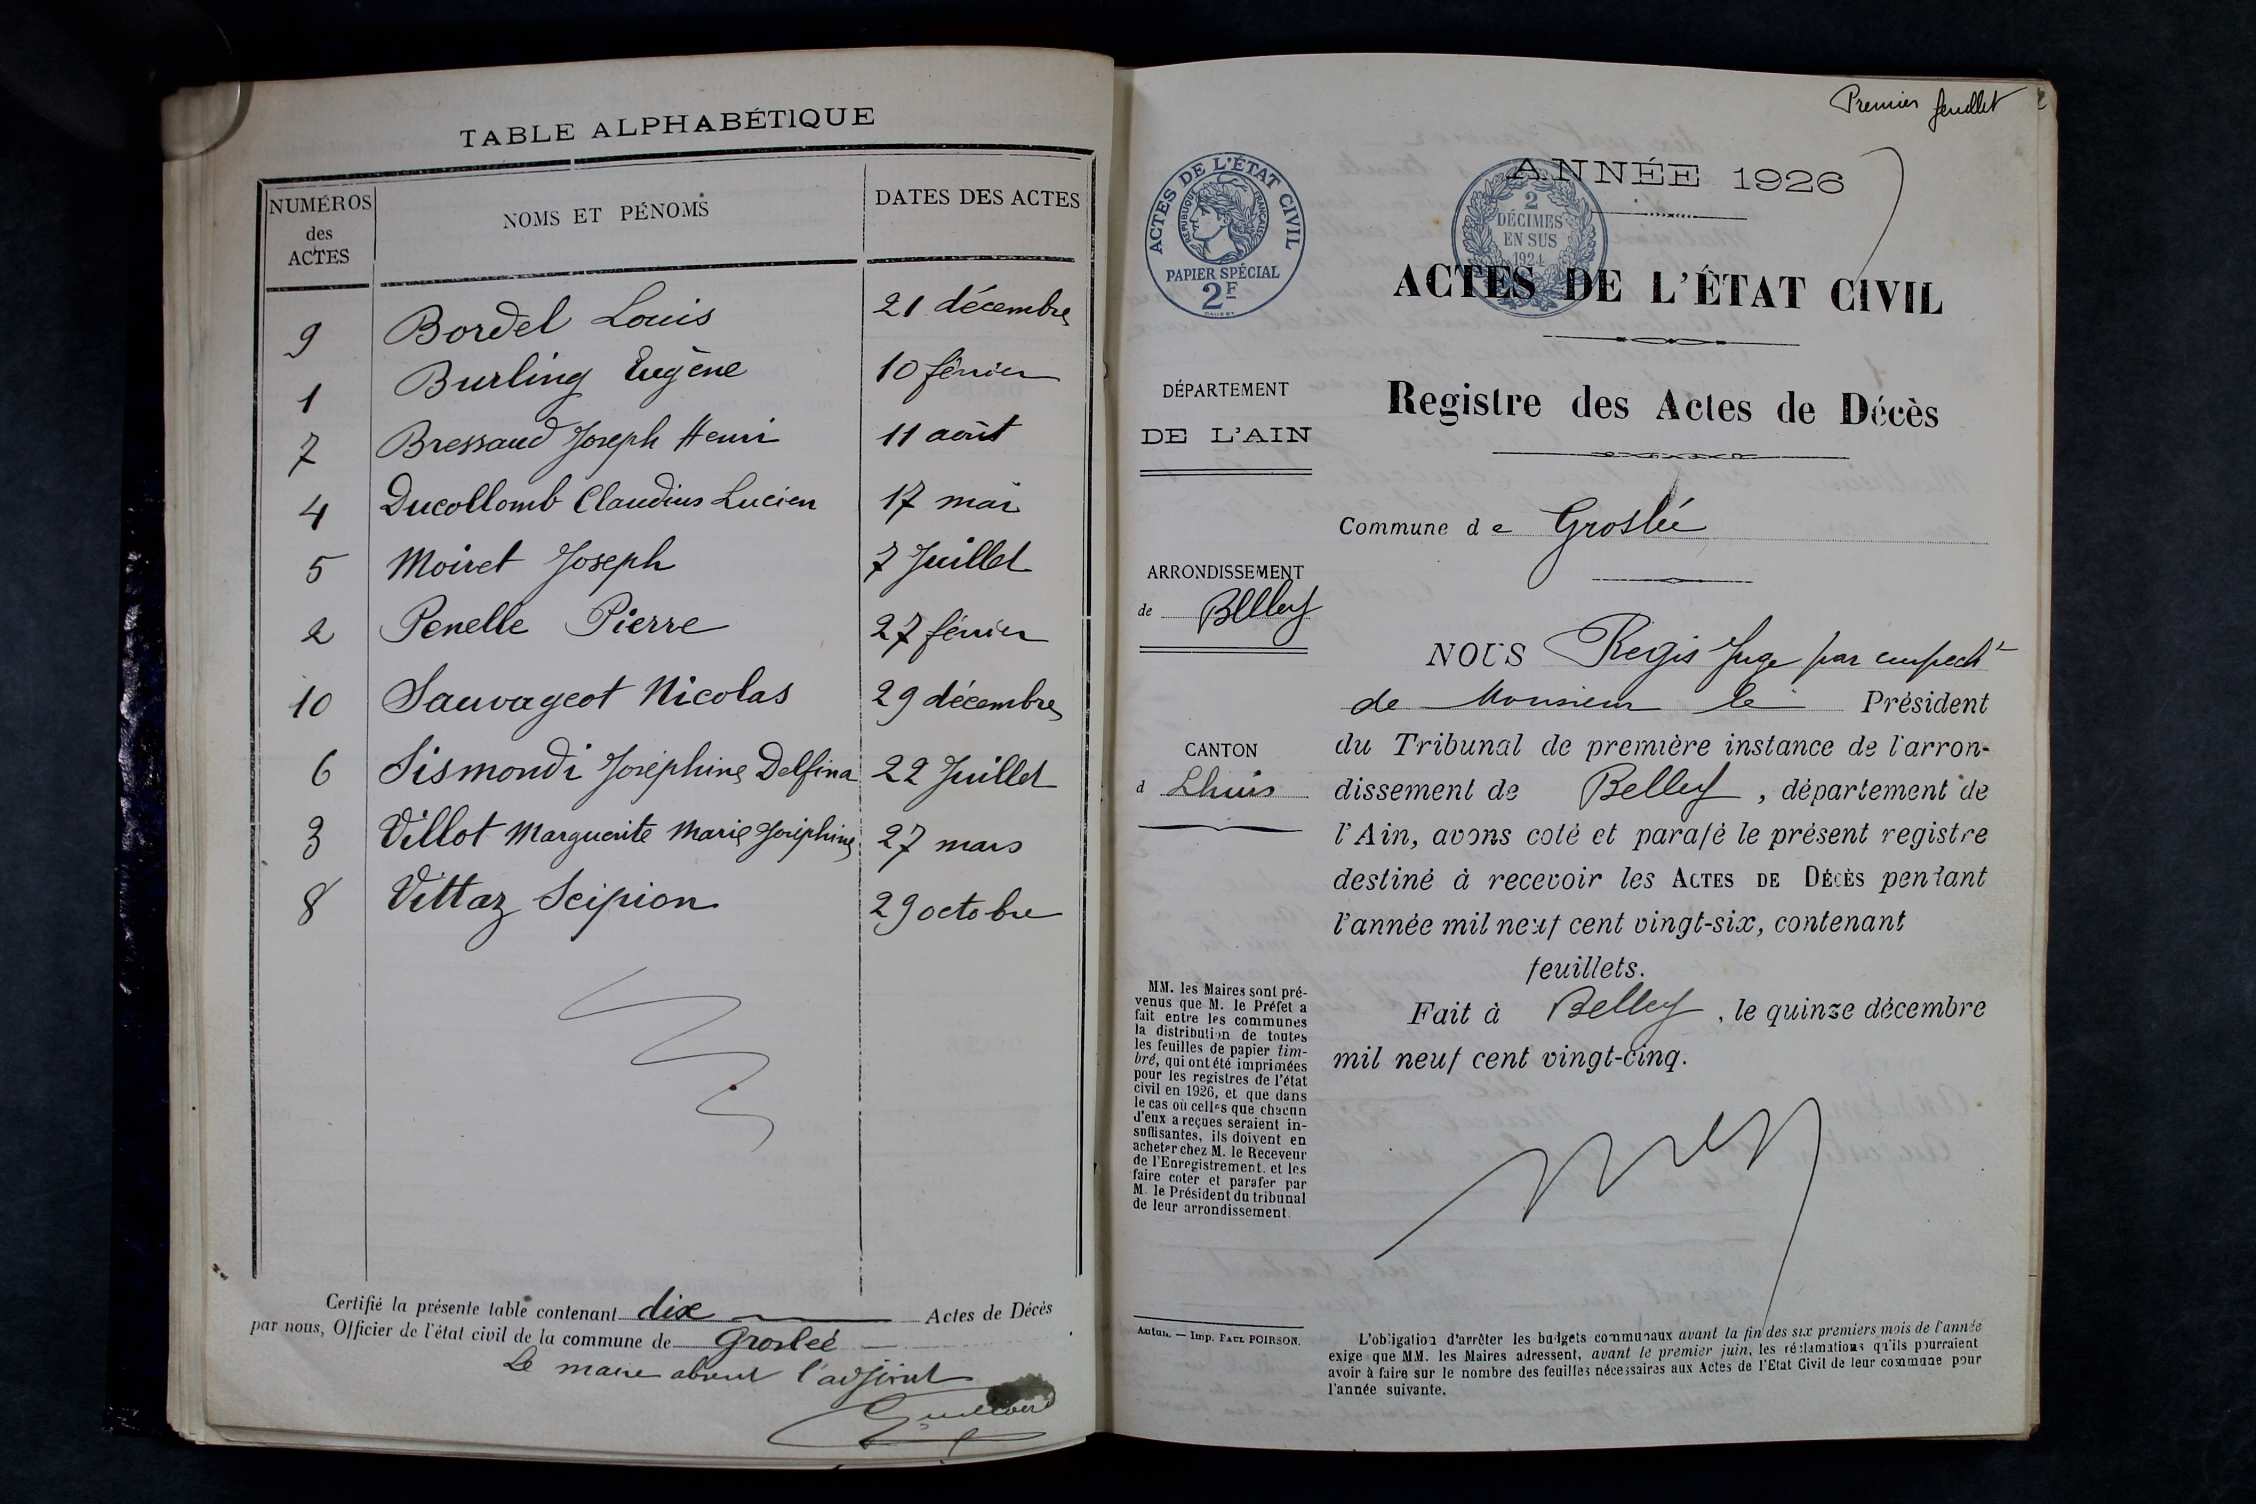 TABLE ALPHABÉTIQUE
NUMÉROS des ACTES
NOMS ET PÉNOMS
DATES DES ACTES
9 Bordel Louis 21 décembre
1 Burling Eugène 10 février
7 Bressaud Joseph Henri 11 août
4 Ducollomb Claudius Lucien 17 mai
5 Moiret Joseph 7 Juillet
2 Penelle Pierre 27 février
10 Sauvageot Nicolas 29 décembre
6 Sismondi Joséphine Delfina 22 Juillet
3 Villot Marguerite Marie Joséphine 27 mars
8 Vittaz Scipion 29 octobre
Certifié la présente table contenant dix Actes de Décès
par nous, Officier de l'état civil de la commune de Groslée
Le maire absent l'adjoint
Premier feuillet
ACTES DE L'ÉTAT CIVIL
RÉPUBLIQUE FRANÇAISE
PAPIER SPÉCIAL
2F
2
DÉCIMES
EN SUS
1924
ANNÉE 1926
ACTES DE L'ÉTAT CIVIL
Registre des Actes de Décès
DÉPARTEMENT
DE L'AIN
ARRONDISSEMENT
de Belley
CANTON
d Lhuis
MM. les Maires sont pré-
venus que M. le Préfet a
fait entre les communes
la distribution de toutes
les feuilles de papier tim-
bré, qui ont été imprimées
pour les registres de l'état
civil en 1926, et que dans
le cas où celles que chacun
d'eux a reçues seraient in-
suffisantes, ils doivent en
acheter chez M. le Receveur
de l'Enregistrement. et les
faire coter et parafer par
M. le Président du tribunal
de leur arrondissement.
Autun. — Imp. PAUL POIRSON.
Commune de Groslée
NOUS Regis Juge par empecht
de Monsieur le Président
du Tribunal de première instance de l'arron-
dissement de Belley, département de
l'Ain, avons coté et parafé le présent registre
destiné à recevoir les ACTES DE DÉCÈS pendant
l'année mil neuf cent vingt-six, contenant
feuillets.
Fait à Belley, le quinze décembre
mil neuf cent vingt-cinq.
L'obligation d'arrêter les budgets communaux avant la fin des six premiers mois de l'année
exige que MM. les Maires adressent, avant le premier juin, les réclamations qu'ils pourraient
avoir à faire sur le nombre des feuilles nécessaires aux Actes de l'Etat Civil de leur commune pour
l'année suivante.